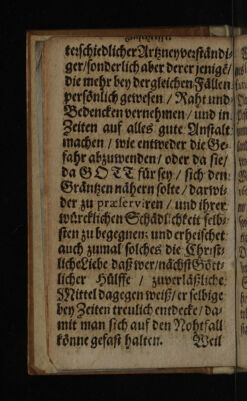 terschiedlicher Artzneyverständi-
ger/sonderlich aber derer jenigẽ/
die mehr bey dergleichen Fällen
persönlich gewesen / Raht und
Bedencken vernehmen / und in
Zeiten auf alles gute Anstalt
machen / wie entweder die Ge-
fahr abzuwenden / oder da sie/
da GOTT für sey / sich den
Gräntzen nähern solte / darwi-
der zu præserviren / und ihrer
würcklichen Schädlichkeit selb-
sten zu begegnen: und erheischet
auch zumal solches die Christ-
liche Liebe daß wer/nächst Gött-
licher Hülffe / zuverläßliche
Mittel dagegen weiß/ er selbige
bey Zeiten treulich entdecke/ da-
mit man sich auf den Nohtfall
könne gefast halten. Weil